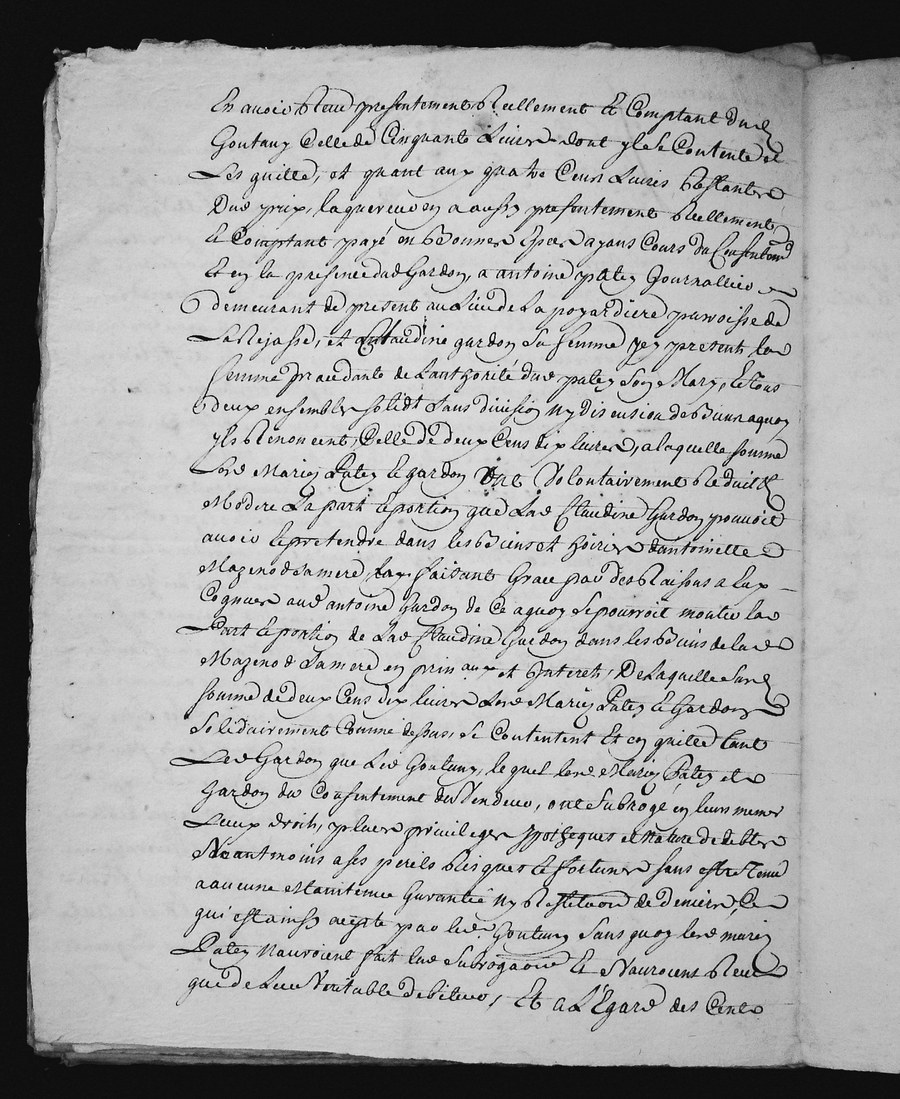 En avoir Receu presentement Reellement Et Comptant dud
Goutany Celle de Cinquante Livres dont yl se Contente et
Les quitte, et quant aux quatre Cens Livres Restantes
Dud prix, laquereur en a aussy presentement Reellement
Et Comptant payé en Bonnes Especes ayans Cours du Consentem
Et en la presence dud Gardon, a antoine patey Journallier
demeurant de present au Lieu de La poyardiere parroisse de
La Rejasse, et Claudine gardon Sa femme jcy presents la
femme procedante de Lauthorité dud patey Son Mary, Et tous
deux ensemble solidt Sans division ny discusion de Biens aquoy
yls Renoncent, Celle de deux Cens dix livres, a laquelle somme
Lesd Mariez Patey Et gardon ont Volontairement Reduit Et
Modere La part Et portion que Lad Claudine Gardon pouvoit
avoir Et pretendre dans les Biens et hoirie dantoinette
Mazenod Sa mere, faisants Grace par des Raisons a Eux
Cognues aud antoine Gardon de Ce aquoy Se pourroit monter la
Part Et portion de Lad Claudine Gardon dans les Biens de lad
Mazenod Sa mere en prinaux et Interets, De Laquelle Susd
somme de deux Cens dix livres Lesd Mariez Patey Et Gardon
Solidairement Comme dessus, Se Contentent Et en quitte tant
Led Gardon que Led Goutany, lequel lesd Mariez Patey et
Gardon du Consentement du Vendeur, ont Subrogé en leurs memes
Lieux droits, places, privileges hypotheques et Nature de debtes
Neantmoins a ses perils Risques Et fortunes sans estre Tenu
a aucune Maintenue Garantie ny Restitution de deniers, Ce
qui est ainsy accepte par led Goutany Sans quoy lesd mariez
Patey Nauroient fait lad Subrogaon Et Nauroient Receu
que de Leur Veritable debiteur, Et a L'Egard des Cent